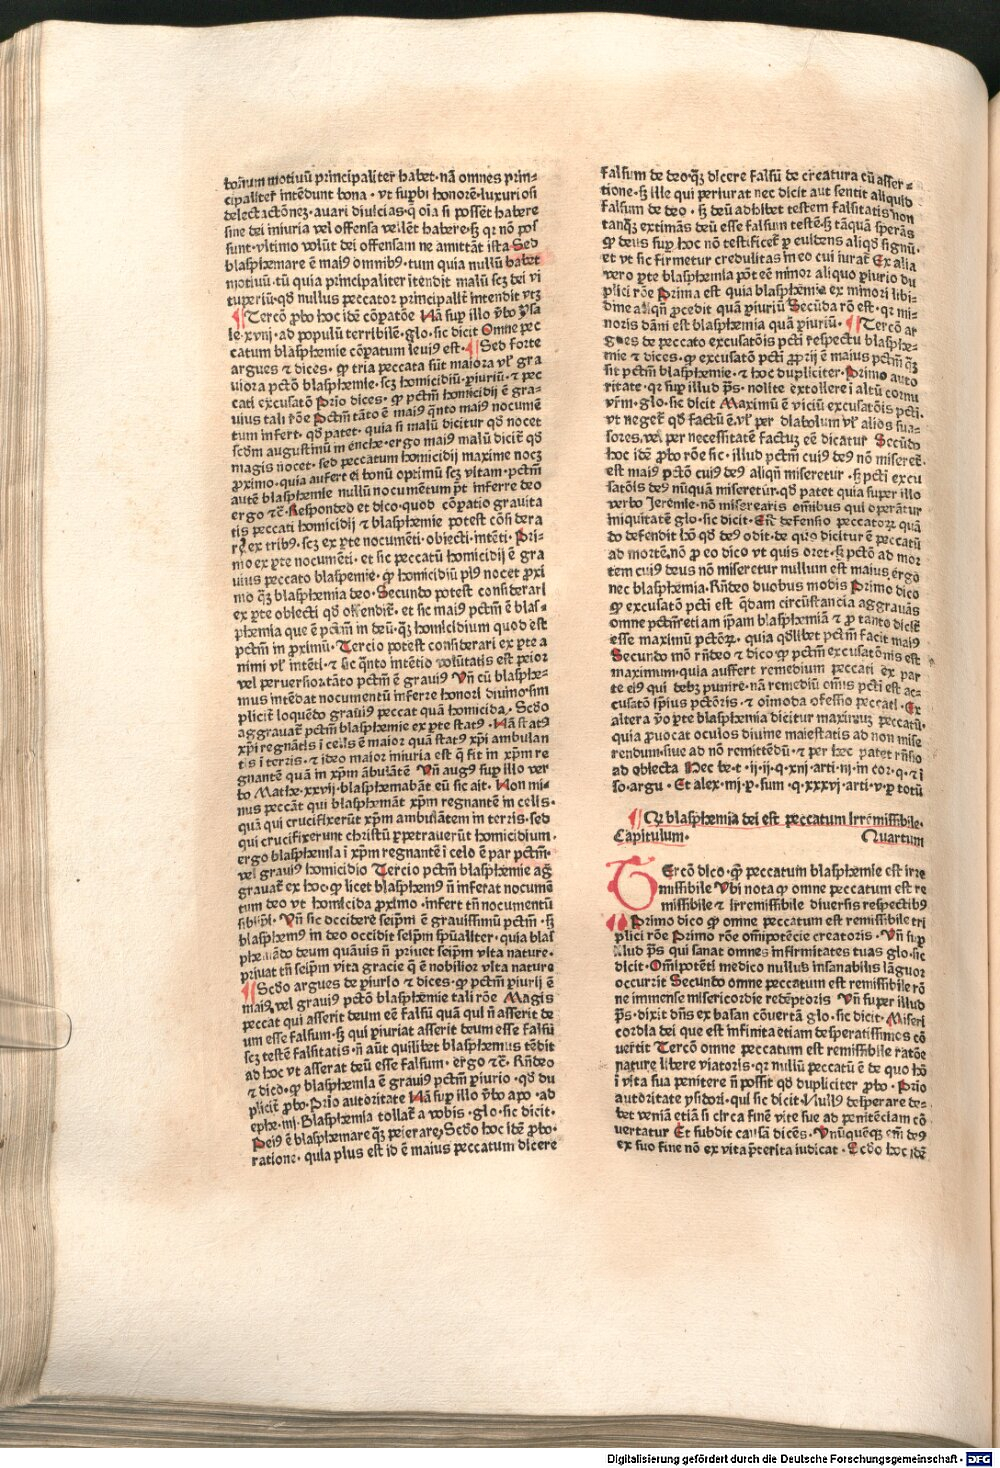 bonum motiuū principaliter habet· nā omnes prin-
cipaliter intēdunt bona · vt supbi honorē· luxuriosi
delectactōnez· auari diuicias· q̄ oīa si possēt habere
sine dei iniuria vel offensa vellēt habere· sꝫ qr nō pos
sunt· vltimo volūt dei offensam ne amittāt ista· Sed
blasphemare ē maiꝰ omnibꝰ· tum quia nullū habet
motiuū· tū quia principaliter ītendit malū scꝫ dei vi
tuperiū· qđ nullus peccator principalit̄ intendit vtꝫ
¶ Tercō ꝓbo hoc idē cōpatōe Nā sup illo v̄bo ysa
ie· xvij· ad populū terribilē· glo· sic dicit Omne pec
catum blasphemie cōpatum leuiꝰ est· ¶ Sed forte
argues ⁊ dices· ꝙ tria peccata sūt maiora vl̄ gra
uiora pctō blasphemie· scꝫ homicidiū· ꝑiuriū· ⁊ pec
cati excusatō Prīo dices· ꝙ pctm̄ homicidij ē gra-
uius tali rōe Pctm̄ tāto ē maiꝰ q̄nto maiꝰ nocumē
tum infert· qđ patet· quia si malū dicitur qđ nocet
scđm augustinū in enche· ergo maiꝰ malū dicit̄ qđ
magis nocet· sed peccatum homicidij maxime nocꝫ
ꝓximo· quia aufert ei bonū optimū scꝫ vitam· pctm̄
autē blasphemie nullū nocumētum pt̄ inferre deo
ergo ⁊c̄· Respondeo et dico· quod cōpatio grauita
tis peccati homicidij ⁊ blasphemie potest cōsidera
ri ex tribꝰ· scꝫ ex ꝑte nocumēti· obiecti· intēti· Pri-
mo ex ꝑte nocumēti· et sic peccatū homicidij ē gra
uius peccato blaspemie· ꝙ homicidiū plꝰ nocet ꝓxi
mo q̄ꝫ blasphemia deo· Secundo potest considerari
ex ꝑte obiecti qđ offendit̄· et sic maiꝰ pctm̄ ē blas-
phemia que ē pctm̄ in deū· q̄ꝫ homicidium quod est
pctm̄ in ꝓximū· Tercio potest considerari ex ꝑte a
nimi vl̄ intēti· ⁊ sic q̄nto intētio volūtatis est peior
vel peruersior tāto pctm̄ ē grauiꝰ Vn̄ cū blasphe-
mus intēdat nocumentū inferre honori diuino· sim
plicit̄ loquēdo grauiꝰ peccat quā homicida· Scđo
aggrauat̄ pctm̄ blasphemie ex ꝑte statꝰ· Nā statꝰ
xp̄i regnātis ī celis ē maior quā statꝰ xp̄i ambulan
tis ī terris· ⁊ ideo maior iniuria est q̄ fit in xp̄m re
gnantē quā in xp̄m ābulātē Vn̄ augꝰ sup illo ver
bo Mathe· xxvij· blasphemabāt eū sic ait· Non mi-
nus peccāt qui blasphemāt xp̄m regnantē in celis·
quā qui crucifixerūt xp̄m ambulātem in terris· sed
qui crucifixerunt christū ꝑpetrauerūt homicidium·
ergo blasphemia ī xp̄m regnantē ī celo ē par pctm̄·
vel grauiꝰ homicidio Tercio pctm̄ blasphemie ag
grauat̄ ex hoc· ꝙ licet blasphemꝰ n̄ inferat nocumē
tum deo vt homicida ꝓximo· infert tn̄ nocumentū
sibiip̄i· Vn̄ sic occidere seipm̄ ē grauissimū pctm̄· sꝫ
blasphemꝰ in deo occidit seipm̄ sp̄ualiter· quia blas
phemādo deum quāuis n̄ priuet seipm̄ vita nature·
priuat tn̄ seipm̄ vita gracie q̄ ē nobilior vita nature
¶ Scđo argues de ꝑiurio ⁊ dices· ꝙ pctm̄ ꝑiurij ē
maiꝰ vel grauiꝰ pctō blasphemie tali rōe Magis
peccat qui asserit deum eē falsū quā qui n̄ asserit de
um esse falsum· sꝫ qui ꝑiuriat asserit deum esse falsū
scꝫ testē falsitatis· n̄ aūt quilibet blasphemus tēdit
ad hoc vt asserat deū esse falsum· ergo ⁊c̄· Rn̄deo
⁊ dico· ꝙ blasphemia ē grauiꝰ pctm̄ ꝑiurio· qđ du
plicit̄ ꝓbo· Prīo autoritate Nā sup illo v̄bo apo· ad
ephe· iiij· Blasphemia tollat̄ a vobis· glo· sic dicit·
Peiꝰ ē blasphemare q̄ꝫ peierare· Scđo hoc idē ꝓbo·
ratione· quia plus est id ē maius peccatum dicere
falsum de deo· q̄ꝫ dicere falsū de creatura cū asser-
tione· sꝫ ille qui periurat nec dicit aut sentit aliquid
falsum de deo· sꝫ deū adhibet testem falsitatis non
tanq̄ꝫ extimās deū esse falsum testē· sꝫ tāquā sperās
ꝙ deus sup hoc nō testificet̄ ꝑ euidens aliqđ signū·
et vt sic firmetur credulitas in eo cui iurat̄ Ex alia
vero ꝑte blasphemia pōt eē minor aliquo ꝑiurio du
plici rōe Prima est quia blasphemia ex minori libi-
dine aliqn̄ ꝓcedit quā ꝑiuriū Secūda rō est· qr mi-
noris dāni est blasphemia quā ꝑiuriū· ¶ Tercō ar
gues de peccato excusatōis pcti respectu blasphe-
mie ⁊ dices· ꝙ excusatō pcti ꝓprij ē maius pctm̄ q̄ꝫ
sit pctm̄ blasphemie· ⁊ hoc dupliciter· Primo auto
ritate· qr sup illud ps̄· nolite extollere ī altū cornu
vr̄m· glo· sic dicit Maximū ē viciū excusatōis pcti·
vt neget̄ qđ factū ē· vl̄ per diabolum vl̄ alios sua-
sores· vel per necessitatē factuꝫ eē dicatur Secūdo
hoc idē ꝓbo rōe sic· illud pctm̄ cui deꝰ nō miseret̄·
est maiꝰ pctō cui deꝰ aliqn̄ miseretur· sꝫ pcti excu
satōis deꝰ nūquā miseretur· qđ patet quia super illo
verbo Jeremie· nō miserearis om̄ibus qui operātur
iniquitatē glo· sic dicit· Em̄ defensio peccatorꝫ quā
do defendit hō qđ deꝰ odit· de quo dicitur ē peccatū
ad mortē· nō ꝓ eo dico vt quis oret· sꝫ pctō ad mor
tem cuiꝰ deus nō miseretur nullum est maius ergo
nec blasphemia· Rn̄deo duobus modis Primo dico
ꝙ excusatō pcti est q̄dam circūstancia aggrauās
omne pctm̄ etiam ip̄am blasphemiā ⁊ ꝓ tanto dicit̄
esse maximū pctōrꝫ· quia qđlibet pctm̄ facit maiꝰ
Secundo mō rn̄deo ⁊ dico ꝙ pctm̄ excusatōnis est
maximum· quia auffert remedium peccati ex par
te eiꝰ qui debꝫ punire· nā remediū om̄is pcti est ac-
cusatō ip̄ius pctōris· ⁊ oīmoda ꝯfessio peccati· Ex
altera v̄o ꝑte blasphemia dicitur maximuꝫ peccatū·
quia ꝓuocat oculos diuine maiestatis ad non mise
rendum· siue ad nō remittēdū· ⁊ per hec patet rn̄sio
ad obiecta Hec be· t· ij· ij· q· xiij· arti· iij· in cor· q· ⁊ ī
so· argu· Et alex· iij· p· sum· q· xxxvj· arti· v· p totū
¶ Qr blasphemia dei est peccatum irremissibile·
Capitulum· Quartum
TErcō dico· ꝙ peccatum blasphemie est irre
missibile Vbi nota ꝙ omne peccatum est re
missibile ⁊ irremissibile diuersis respectibꝰ
¶ Primo dico ꝙ omne peccatum est remissibile tri
plici rōe Primo rōe om̄ipotēcie creatoris· Vn̄ sup
illud ps̄ qui sanat omnes infirmitates tuas glo· sic
dicit· Om̄ipotēti medico nullus insanabilis lāguor
occurrit Secundo omne peccatum est remissibile rō
ne immense misericordie redēptoris Vn̄ super illud
ps̄· dixit dn̄s ex basan cōuertā glo· sic dicit· Miseri
cordia dei que est infinita etiam desperatissimos cō
uertit Tercō omne peccatum est remissibile ratōe
nature libere viatoris· qr nullū peccatū ē de quo hō
ī vita sua penitere n̄ possit qđ dupliciter ꝓbo· Prīo
autoritate ysidori· qui sic dicit· Nullꝰ desperare de-
bet veniā etiā si circa finē vite sue ad penitēciam cō
uertatur Et subdit causā dicēs· Vnūquēqꝫ em̄ deꝰ
ex suo fine nō ex vita p̄terita iudicat· Scđo hoc idē
Digitalisierung gefördert durch die Deutsche Forschungsgemeinschaft - DFG